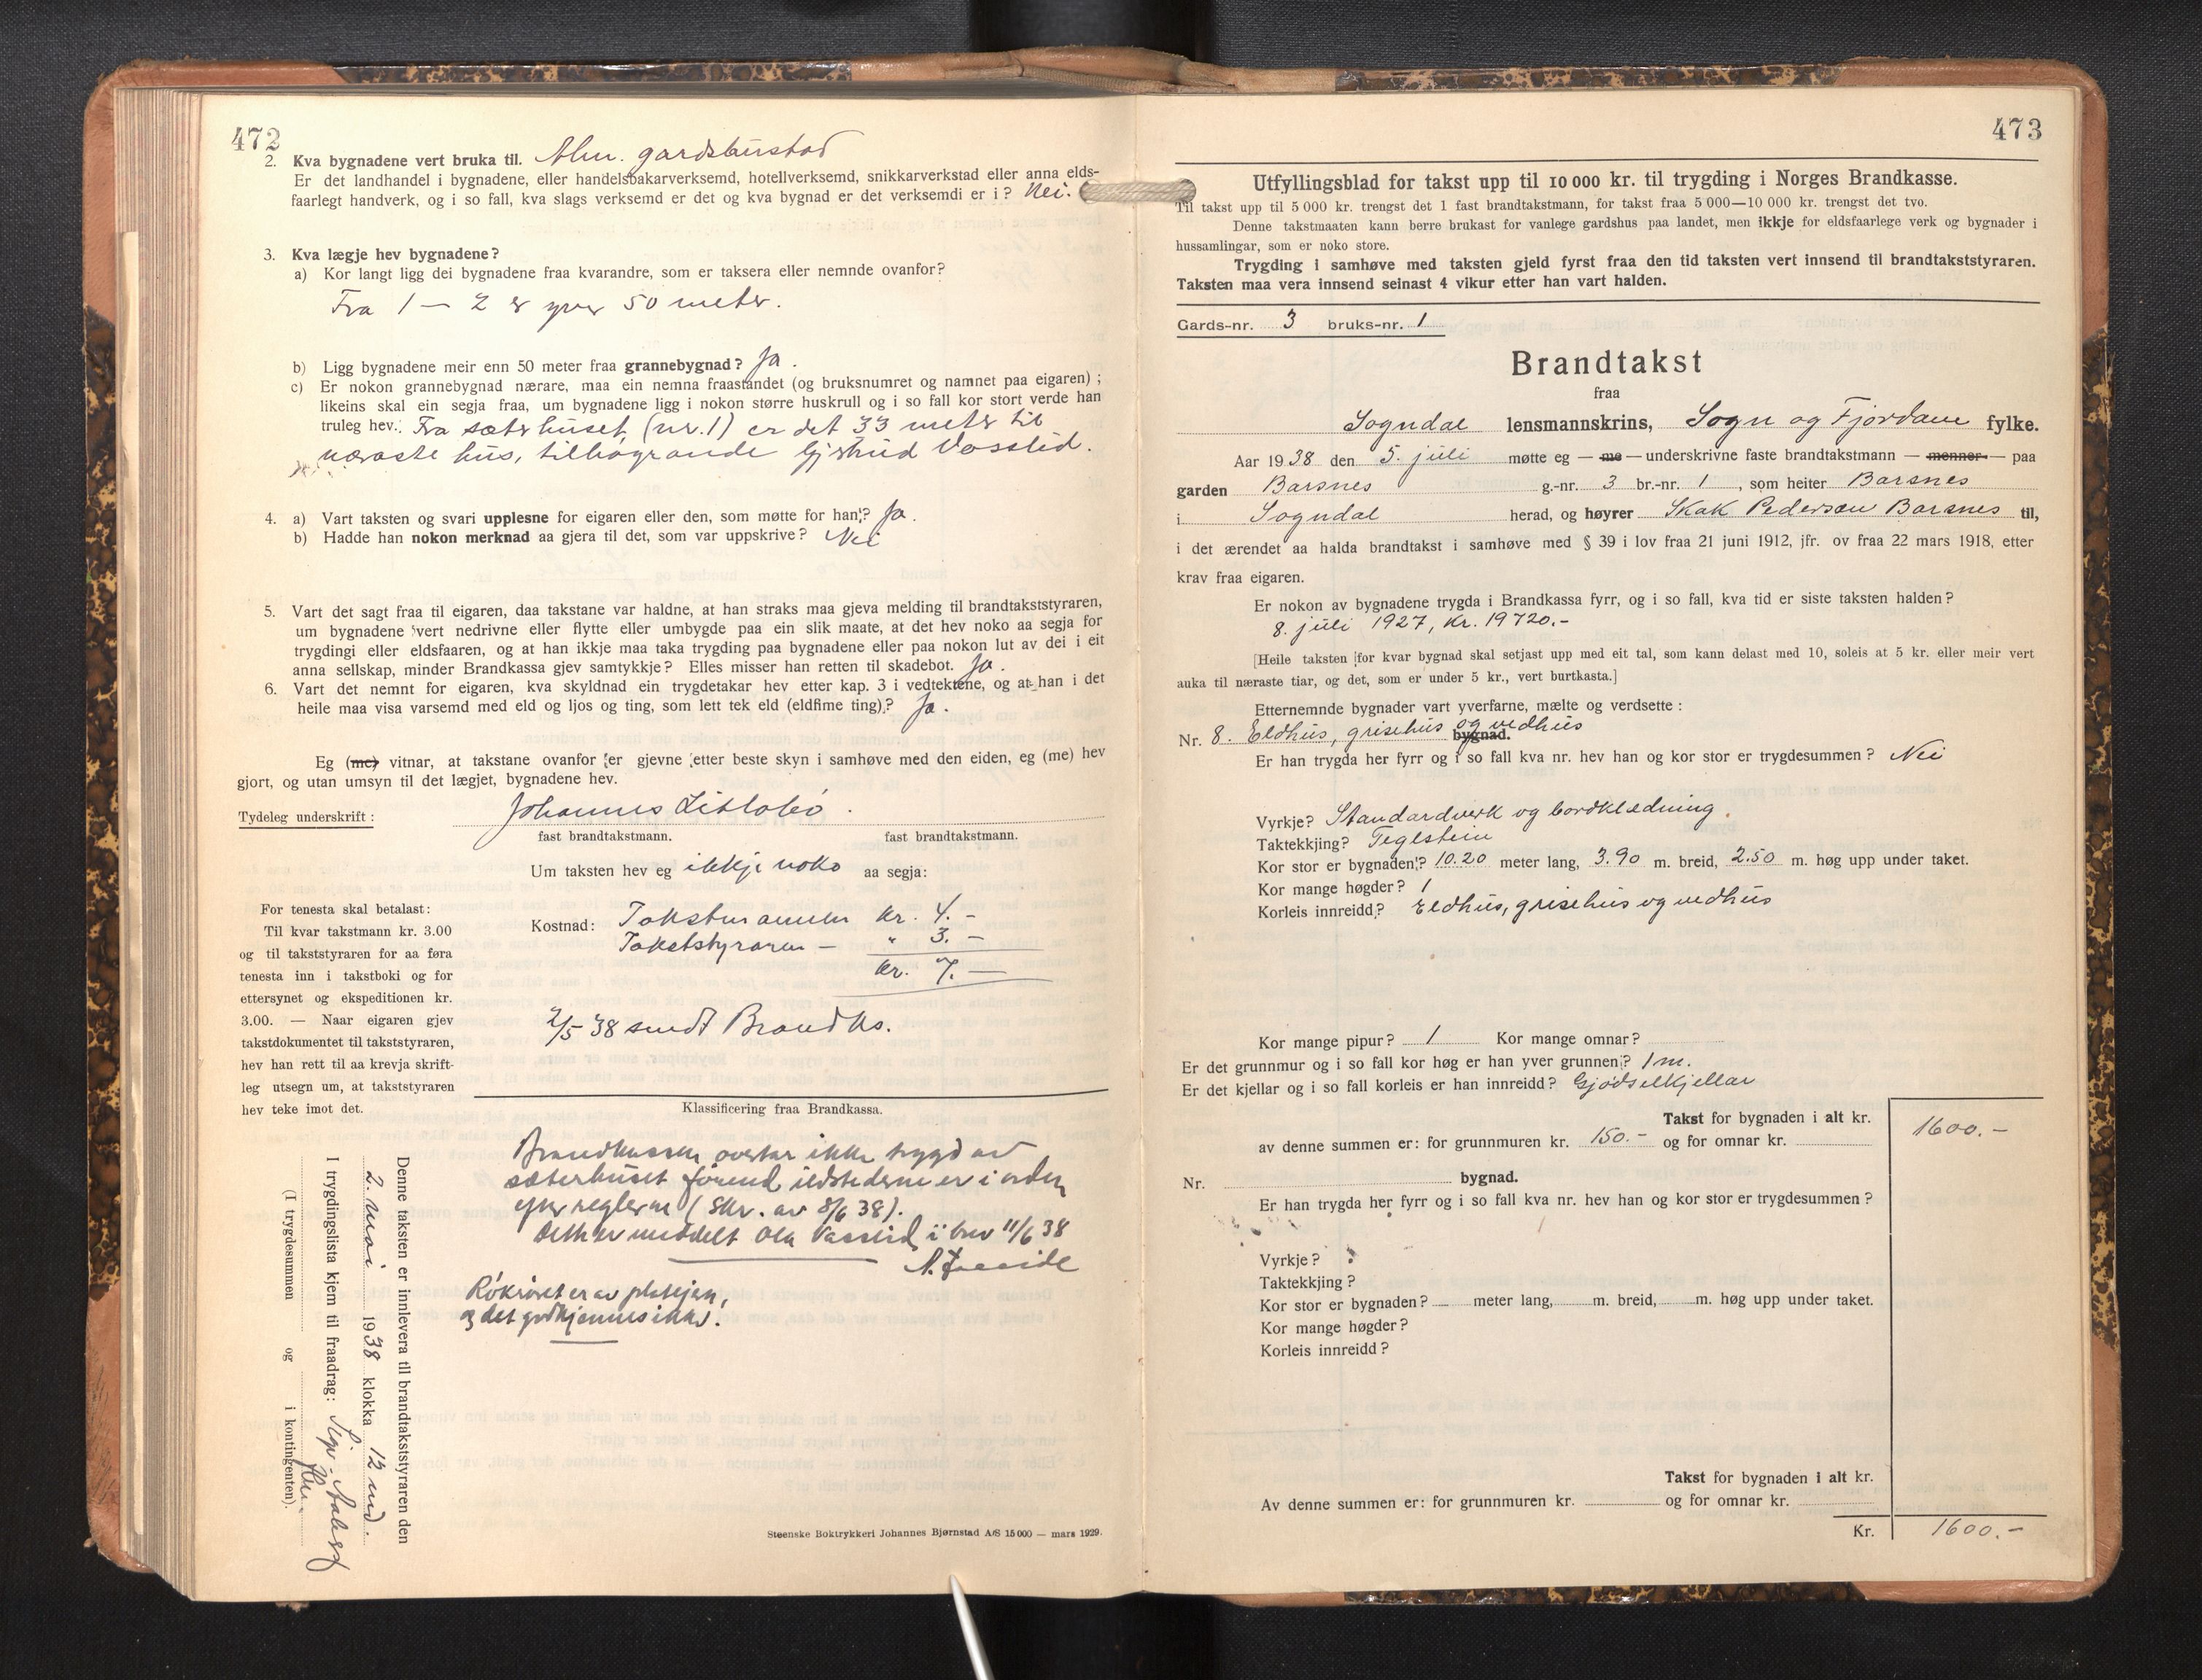 472
2. Kva bygnadene vert bruka til. Alm. gardsbustad
Er det landhandel i bygnadene, eller handelsbakarverksemd, hotellverksemd, snikkarverkstad eller anna elds-
faarlegt handverk, og i so fall, kva slags verksemd er det og kva bygnad er det verksemdi er i? Nei.
3. Kva lægje hev bygnadene?
a) Kor langt ligg dei bygnadene fraa kvarandre, som er taksera eller nemnde ovanfor?
Fra 1 — 2 er yver 50 meter.
b) Ligg bygnadene meir enn 50 meter fraa grannebygnad? Ja.
c) Er nokon grannebygnad nærare, maa ein nemna fraastandet (og bruksnumret og namnet paa eigaren);
likeins skal ein segja fraa, um bygnadene ligg i nokon større huskrull og i so fall kor stort verde han
truleg hev. Fra sæterhuset (nr. 1) er det 33 meter til
næraste hus, tilhøgrande Gjertrud Vasslid.
4. a) Vart taksten og svari upplesne for eigaren eller den, som møtte for han? Ja.
b) Hadde han nokon merknad aa gjera til det, som var uppskrive? Nei
5. Vart det sagt fraa til eigaren, daa takstane var haldne, at han straks maa gjeva melding til brandtakststyraren,
um bygnadene vert nedrivne eller flytte eller umbygde paa ein slik maate, at det hev noko aa segja for
trygdingi eller eldsfaaren, og at han ikkje maa taka trygding paa bygnadene eller paa nokon lut av dei i eit
anna sellskap, minder Brandkassa gjev samtykkje? Elles misser han retten til skadebot. Ja.
6. Vart det nemnt for eigaren, kva skyldnad ein trygdetakar hev etter kap. 3 i vedtektene, og at han i det
heile maa visa varsemd med eld og ljos og ting, som lett tek eld (eldfime ting)? Ja.
Eg (me) vitnar, at takstane ovanfor er gjevne etter beste skyn i samhøve med den eiden, eg (me) hev
gjort, og utan umsyn til det lægjet, bygnadene hev.
Tydeleg underskrift: Johannes Litlabø.
fast brandtakstmann. fast brandtakstmann.
Um taksten hev eg ikkje noko aa segja:
For tenesta skal betalast:
Til kvar takstmann kr. 3.00
og til takststyraren for aa føra
tenesta inn i takstboki og for
ettersynet og ekspeditionen kr.
3.00. — Naar eigaren gjev
takstdokumentet til takststyraren,
hev han rett til aa krevja skrift-
leg utsegn um, at takststyraren
hev teke imot det.
Kostnad: Takstmannen kr. 4.-
Takststyraren — " 3.-
kr. 7.—
2/5 38 sendt Brandks.
Klassificering fraa Brandkassa.
Brandkassen overtar ikke trygd av
sæterhuset førend ildstederne er i orden
efter reglerne (Skr. av 8/6 38).
Dette er meddelt Ola Vasslid i brev 11/6 38
Røkrøret er av platejern,
og det godkjennes ikke.
Denne taksten er innlevera til brandtakststyraren den
2. mai 1938 klokka 12 md.
I trygdingslista kjem til fraadrag:
(I trygdesummen og i kontingenten).
Steenske Boktrykkeri Johannes Bjørnstad A/S 15 000 — mars 1929.
473
Utfyllingsblad for takst upp til 10 000 kr. til trygding i Norges Brandkasse.
Til takst upp til 5 000 kr. trengst det 1 fast brandtakstmann, for takst fraa 5 000—10 000 kr. trengst det tvo.
Denne takstmaaten kann berre brukast for vanlege gardshus paa landet, men ikkje for eldsfaarlege verk og bygnader i
hussamlingar, som er noko store.
Trygding i samhøve med taksten gjeld fyrst fraa den tid taksten vert innsend til brandtakststyraren.
Taksten maa vera innsend seinast 4 vikur etter han vart halden.
Gards-nr. 3 bruks-nr. 1
Brandtakst
fraa
Sogndal lensmannskrins, Sogn og Fjordane fylke.
Aar 1938 den 5. juli møtte eg — me — underskrivne faste brandtakstmann — menner — paa
garden Barsnes g.-nr. 3 br.-nr. 1, som heiter Barsnes
i Sogndal herad, og høyrer Skak Pedersen Barsnes til,
i det ærendet aa halda brandtakst i samhøve med § 39 i lov fraa 21 juni 1912, jfr. ov fraa 22 mars 1918, etter
krav fraa eigaren.
Er nokon av bygnadene trygda i Brandkassa fyrr, og i so fall, kva tid er siste taksten halden?
8. juli 1927, kr. 19720.-
[Heile taksten for kvar bygnad skal setjast upp med eit tal, som kann delast med 10, soleis at 5 kr. eller meir vert
auka til næraste tiar, og det, som er under 5 kr., vert burtkasta.]
Etternemnde bygnader vart yverfarne, mælte og verdsette:
Nr. 8. Eldhus, grisehus og vedhus bygnad.
Er han trygda her fyrr og i so fall kva nr. hev han og kor stor er trygdesummen? Nei
Vyrkje? Standardverk og bordklædning.
Taktekkjing? Teglstein
Kor stor er bygnaden? 10.20 meter lang, 3.90 m. breid, 2.50 m. høg upp under taket.
Kor mange høgder? 1
Korleis innreidd? Eldhus, grisehus og vedhus
Kor mange pipur? 1 Kor mange omnar?
Er det grunnmur og i so fall kor høg er han yver grunnen? 1 m.
Er det kjellar og i so fall korleis er han innreidd? Gjødselkjellar
Takst for bygnaden i alt kr. 1600.-
av denne summen er: for grunnmuren kr. 150.- og for omnar kr.
Nr. bygnad.
Er han trygda her fyrr og i so fall kva nr. hev han og kor stor er trygdesummen?
Vyrkje?
Taktekkjing?
Kor stor er bygnaden? meter lang, m. breid, m. høg upp under taket.
Kor mange høgder?
Korleis innreidd?
Takst for bygnaden i alt kr.
Av denne summen er: for grunnmuren kr. og for omnar kr.
Kr. 1600.-